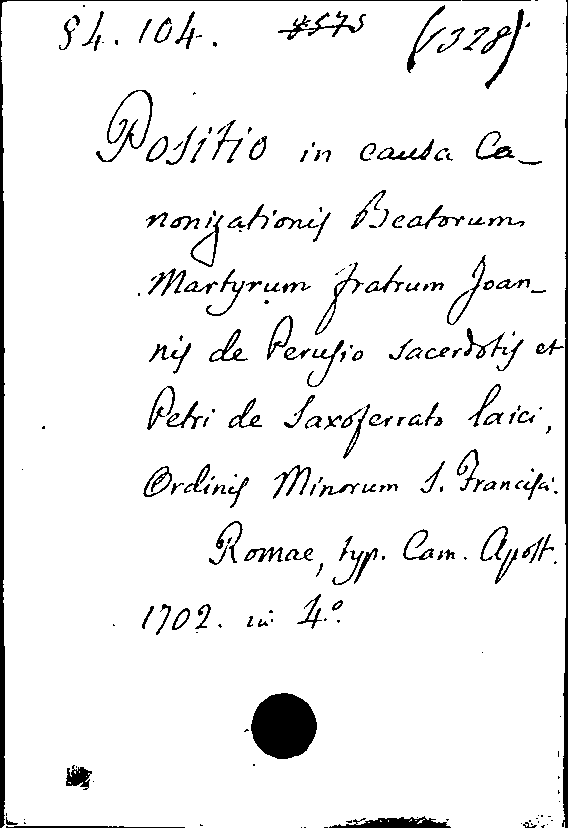 84. 104. 4575 (1328)
Positio in causa Ca_
nonizationis Beatorum
Martyrum fratrum Joan_
nis de Perusio sacerdotis et
Petri de Saxoferrato laici,
Ordinis Minorum S. Francisci.
Romae, typ. Cam. Apost.
1702. in 4º.